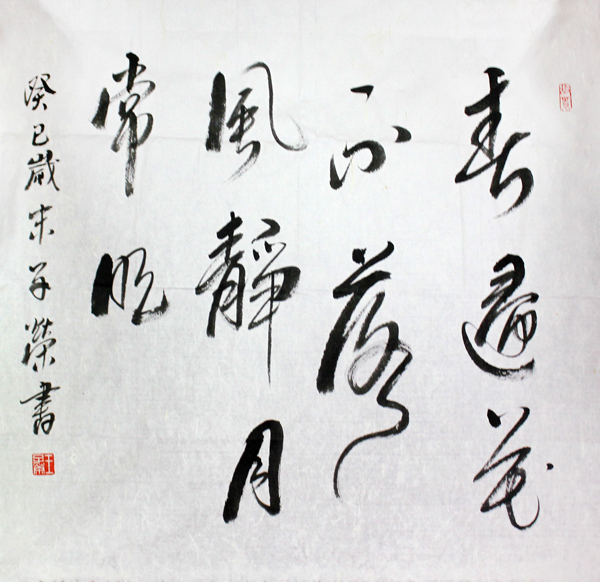 春歸花
不落
風靜月
常明
癸巳歲末子榮書